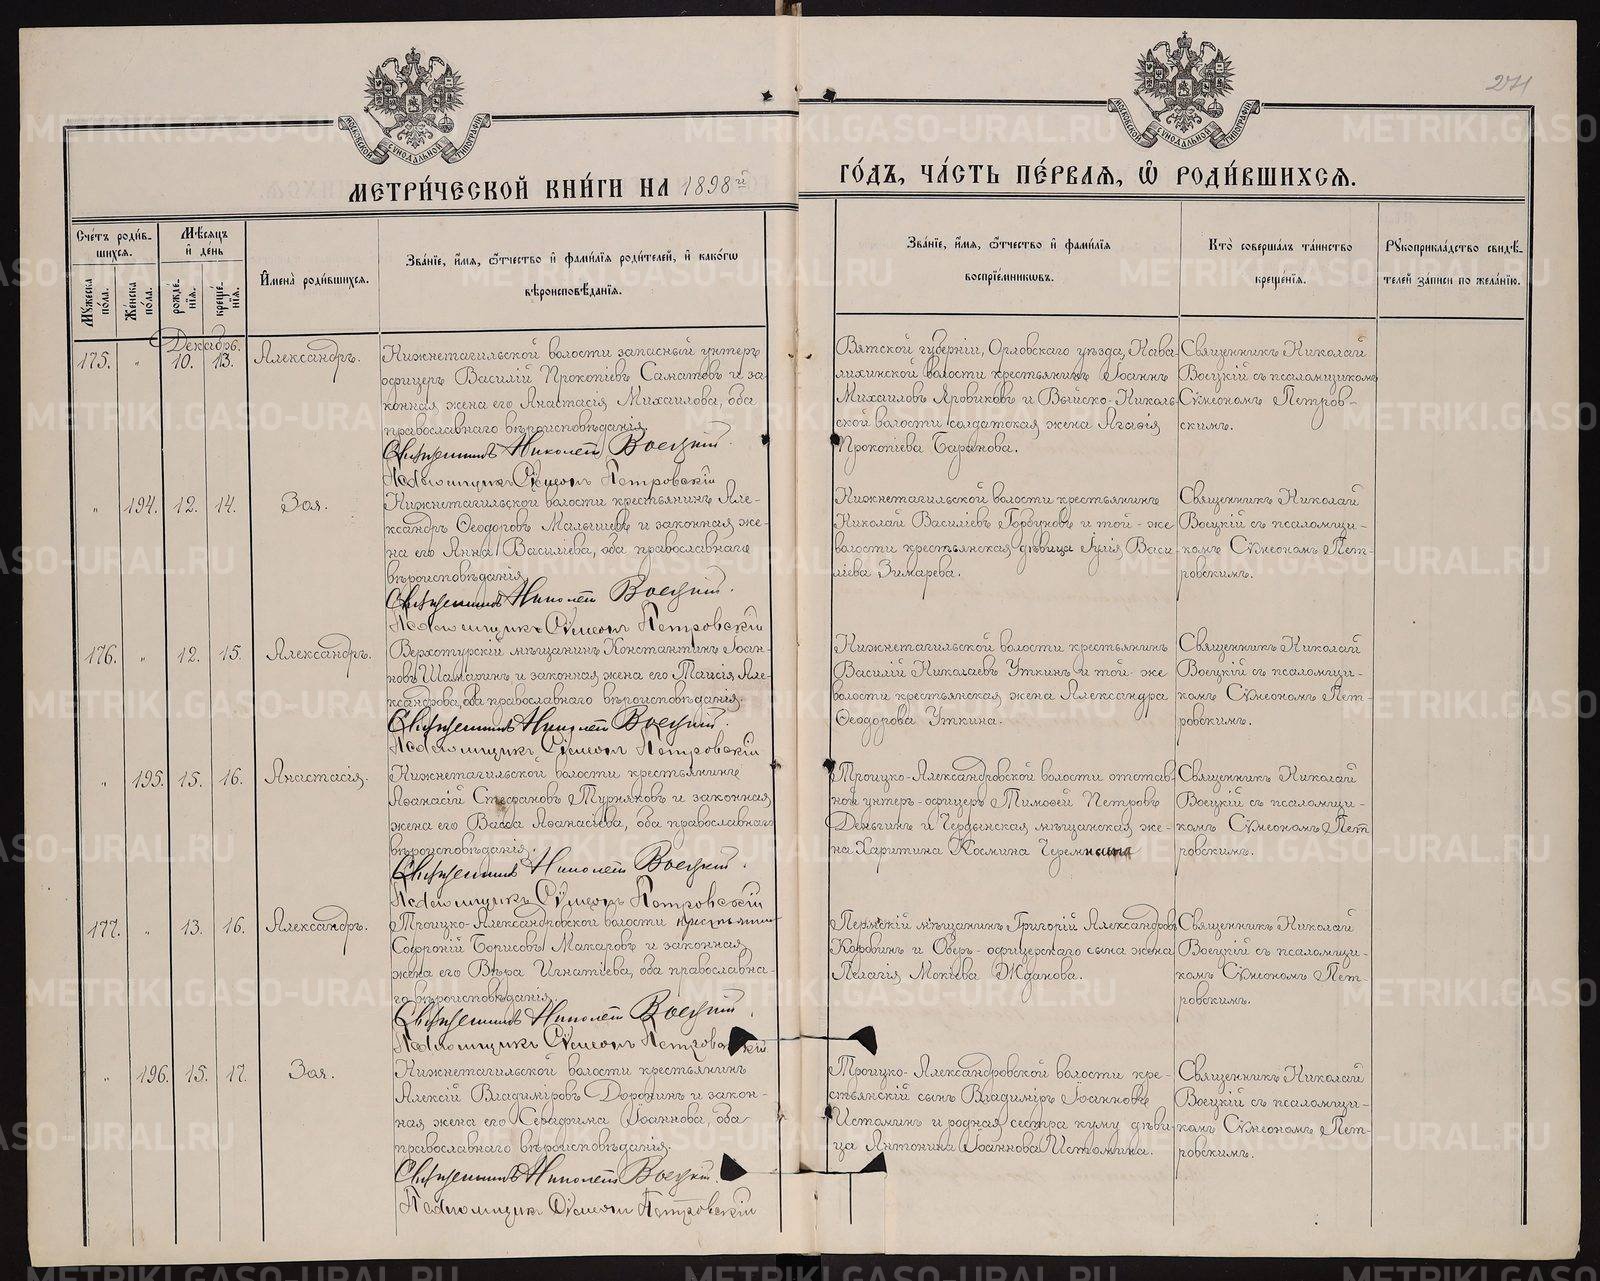 274
МОСКОВСКОЙ СѶНОДАЛЬНОЙ ТИПОГРАФІИ
МОСКОВСКОЙ СѶНОДАЛЬНОЙ ТИПОГРАФІИ
МЕТРИ́ЧЕСКОЙ КНИ́ГИ НА 1898й
ГО́ДЪ, ЧА́СТЬ ПЕ́РВАЯ, Ѽ РОДИ́ВШИХСЯ.
Сче́тъ роди́в-
шихся.
Мꙋжеска по́ла.
Же́нска по́ла.
Мѣ́сяцъ
и҆ де́нь
рожде́нїя.
креще́нїя.
И҆мена̀ роди́вшихся.
Зва́нїе, и҆́мя, ѻ҆́тчество и҆ фами́лїя роди́телей, и҆ како́гѡ
вѣроисповѣ́данїя.
Зва́нїе, и҆́мя, ѻ҆́тчество и҆ фами́лїя
воспрїе́мникѡвъ.
Кто̀ соверша́лъ та́инство
креще́нїя.
Рꙋкоприкла́дство свидѣ́-
телей за́писи по жела́нїю.
Декабрь.
175. " 10. 13. Александръ.
Нижнетагильской волости запасный унтеръ
офицеръ Василій Прокопіевъ Саматовъ и за-
конная жена его Анастасія Михаилова, оба
православнаго вѣроисповѣданія.
Священникъ Николай Воецкій.
Псаломщикъ Сѵмеонъ Петровскій
Вятской губерніи, Орловскаго уѣзда, Кава-
лихинской волости крестьянинъ Іоаннъ
Михаиловъ Яровиковъ и Выйско-Николь-
ской волости солдатская жена Агаѳія
Прокопіева Баранова.
Священникъ Николай
Воецкій съ псаломщикомъ
Сѵмеономъ Петров-
скимъ.
" 194. 12. 14. Зоя.
Нижнетагильской волости крестьянинъ Але-
ксандръ Ѳеодоровъ Малышевъ и законная же-
на его Анна Василіева, оба православнаго
вѣроисповѣданія
Священникъ Николай Воецкій.
Псаломщикъ Сѵмеонъ Петровскій
Нижнетагильской волости крестьянинъ
Николай Василіевъ Горбуновъ и той-же
волости крестьянская дѣвица Іулія Васи-
ліева Зимарева.
Священникъ Николай
Воецкій съ псаломщи-
комъ Сѵмеономъ Пет-
ровскимъ.
176. " 12. 15. Александръ.
Верхотурскій мѣщанинъ Константинъ Іоан-
новъ Шамаринъ и законная жена его Таисія Але-
ксандрова, оба православнаго вѣроисповѣданія.
Священникъ Николай Воецкій.
Псаломщикъ Сѵмеонъ Петровскій
Нижнетагильской волости крестьянинъ
Василій Николаевъ Уткинъ и той же
волости крестьянская жена Александра
Ѳеодорова Уткина.
Священникъ Николай
Воецкій съ псаломщи-
комъ Сѵмеономъ Пет-
ровскимъ.
" 195. 15. 16. Анастасія.
Нижнетагильской волости крестьянинъ
Аѳанасій Стефановъ Турняковъ и законная
жена его Васса Аѳанасіева, оба православнаго
вѣроисповѣданія.
Священникъ Николай Воецкій.
Псаломщикъ Сѵмеонъ Петровскій
Троицко-Александровской волости отстав-
ной унтеръ-офицеръ Тимоѳей Петровъ
Деньгинъ и Чердынская мѣщанская же-
на Харитина Космина
Священникъ Николай
Воецкій съ псаломщи-
комъ Сѵмеономъ Пет
ровскимъ.
177. " 13. 16. Александръ.
Троицко-Александровской волости крестьянинъ
Софроній Борисовъ Макаровъ и законная
жена его Вѣра Игнатіева, оба православна-
го вѣроисповѣданія.
Священникъ Николай Воецкій.
Псаломщикъ Сѵмеонъ Петровскій
Пермскій мѣщанинъ Григорій Александровъ
Коровинъ и Оберъ-офицерскаго сына жена
Пелагія Мокіева Жданова.
Священникъ Николай
Воецкій съ псаломщи-
комъ Сѵмеономъ Пет-
ровскимъ.
" 196. 15. 17. Зоя.
Нижнетагильской волости крестьянинъ
Алексій Владиміровъ Доронинъ и закон-
ная жена его Серафима Іоаннова, оба
православнаго вѣроисповѣданія.
Священникъ Николай Воецкій.
Псаломщикъ Сѵмеонъ Петровскій
Троицко-Александровской волости кре-
стьянскій сынъ Владиміръ Іоанновъ
Истоминъ и родная сестра куму дѣви-
ца Антонина Іоаннова Истомина.
Священникъ Николай
Воецкій съ псаломщи-
комъ Сѵмеономъ Пет-
ровскимъ.
METRIKI.GASO-URAL.RU